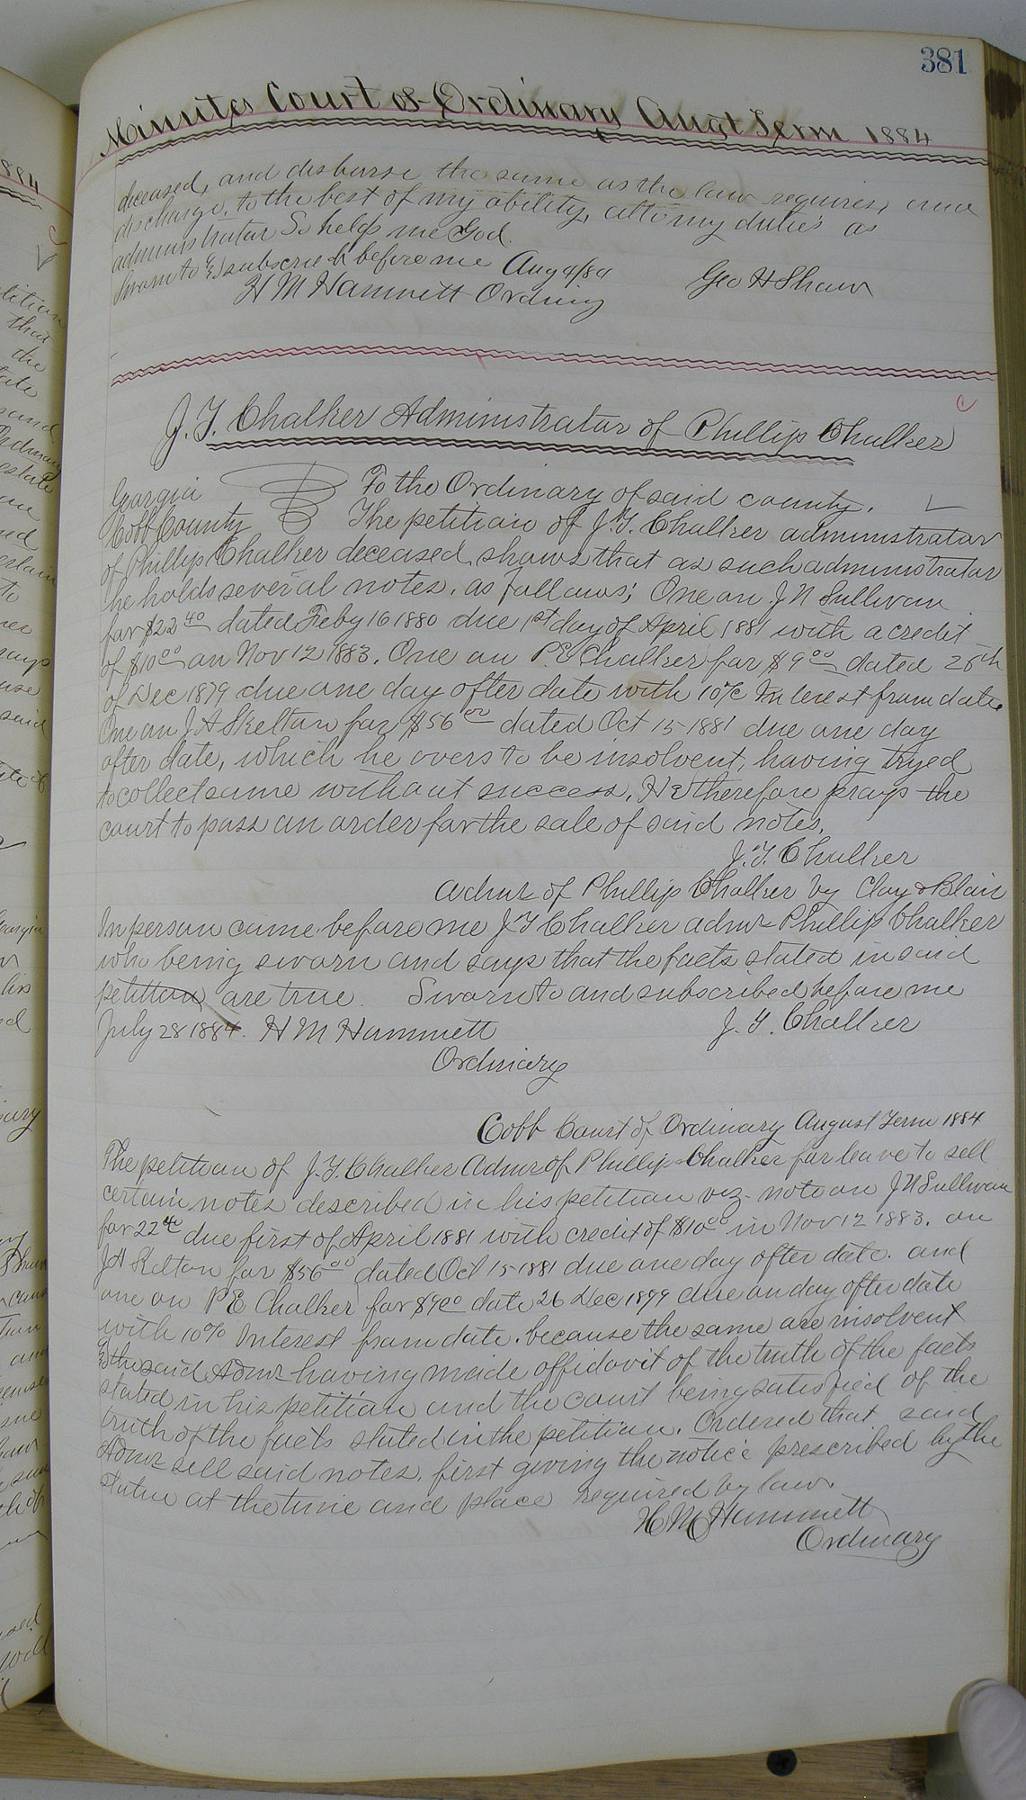 381
Minutes Court of Ordinary Augt Term 1884
deceased, and disburse the same as the law requires, and
discharge, to the best of my ability, all my duties as
administrator So help me God.
Sworn to & subscribed before me Aug 4/84 Geo H Shaw
H M Hammett Ordinary
J. T. Chalker Administrator of Phillip Chalker
Georgia To the Ordinary of said county.
Cobb County The petition of J. T. Chalker administrator
of Phillip Chalker deceased, shows that as such administrator
he holds several notes, as follows; One on J N Sullivan
for $22 40 dated Feby 16 1880 due 1st day of April 1881 with a credit
of $10 00 on Nov 12 1883. One on P E Chalker for $9 00 dated 26th
of Dec 1879 due one day after date with 10% Interest from date.
One on J. A Skelton for $56 00 dated Oct 15 1881 due one day
after date, which he avers to be insolvent, having tryed
to collect same without success, He therefore prays the
court to pass an order for the sale of said notes.
J. T. Chalker
admr of Phillip Chalker by Clay & Blair
In person came before me J T Chalker admr Phillip Chalker
who being sworn and says that the facts stated in said
petition are true. Sworn to and subscribed before me
July 28 1884. H M Hammett J. T. Chalker
Ordinary
Cobb Court of Ordinary August Term 1884
The petition of J. T. Chalker Admr of Phillip Chalker for leave to sell
certain notes described in his petition viz. note on J N Sullivan
for 22 40 due first of April 1881 with credit of $10 00 in Nov 12 1883. on
J A Skelton for $56 00 dated Oct 15 1881 due one day after date. and
one on P E Chalker for $9 00 date 26 Dec 1879 due on day after date
with 10% Interest from date. because the same are insolvent
& the said Admr having made affidavit of the truth of the facts
stated in his petition and the court being satisfied of the
truth of the facts stated in the petition. Ordered that said
Admr sell said notes, first giving the notice prescribed by the
Statue at the time and place required by law.
H M Hammett
Ordinary